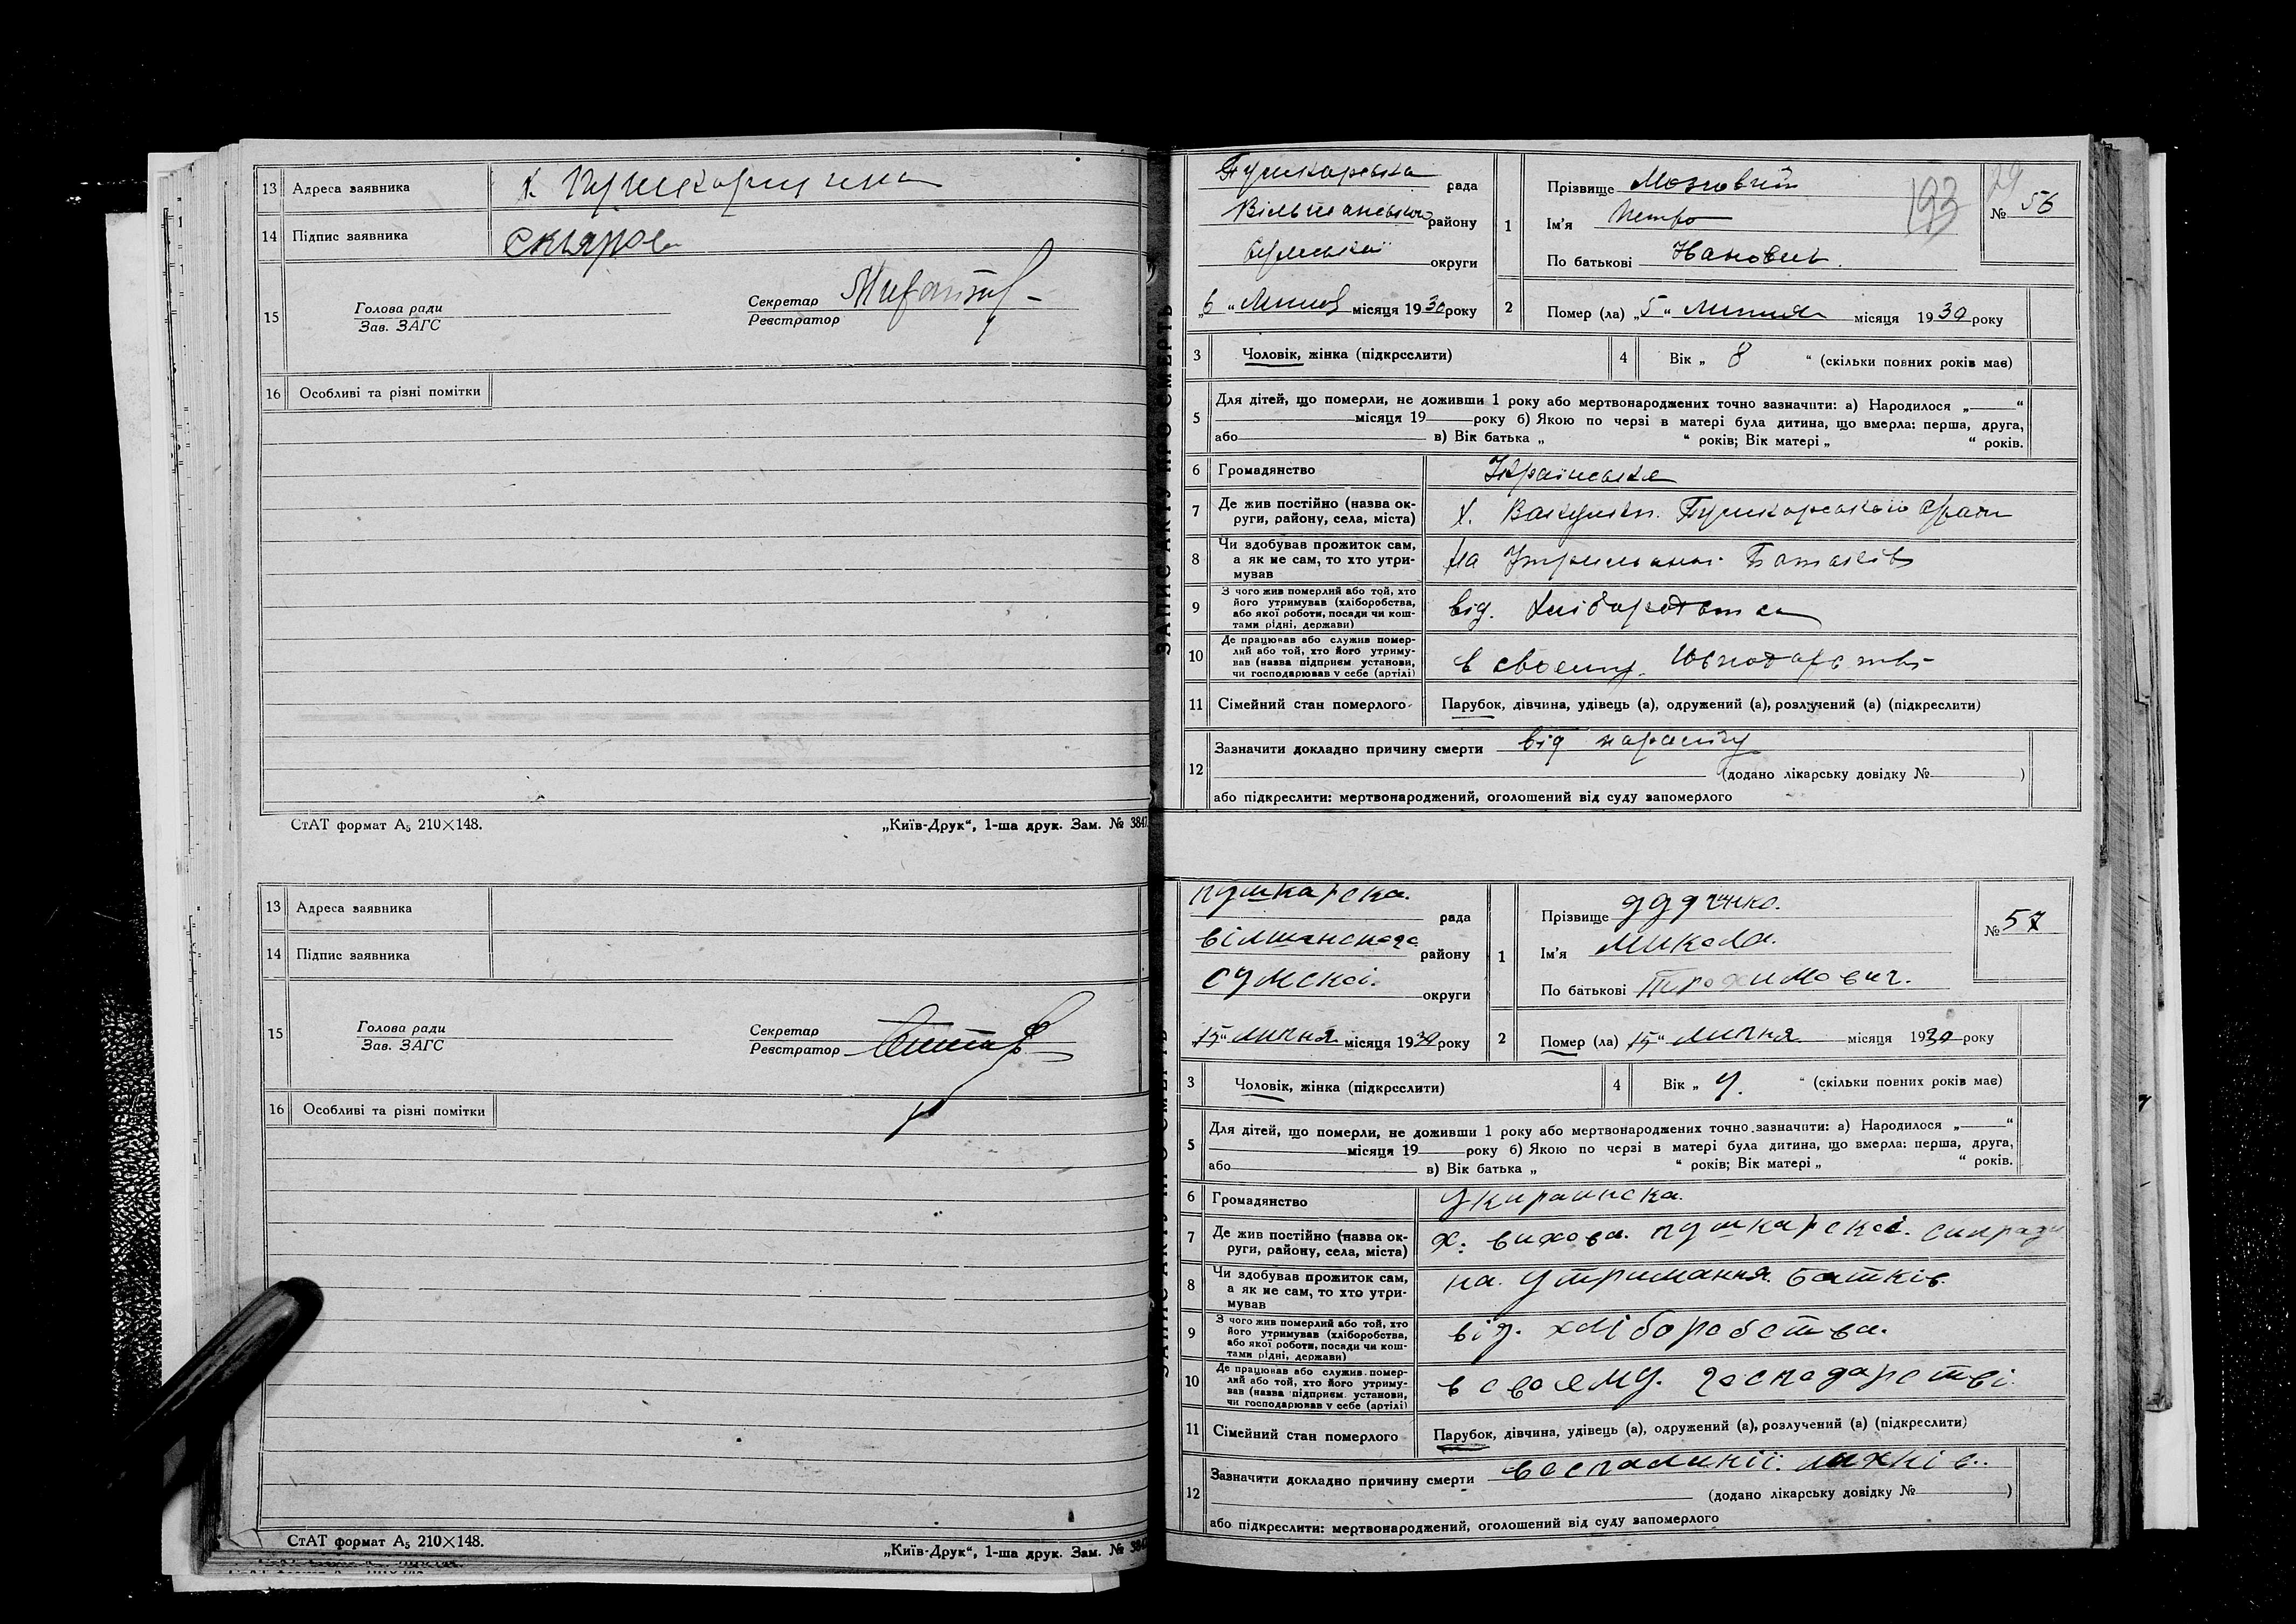 13 Адреса заявника х Пушкарщина
14 Підпис заявника Скляров
15 Голова ради
Зав. ЗАГС
Секретар
Реєстратор
16 Особливі та різні помітки
СтАТ формат А₅ 210×148. „Київ-Друк“, 1-ша друк. Зам. № 3847
13 Адреса заявника
14 Підпис заявника
15 Голова ради
Зав. ЗАГС
Секретар
Реєстратор
16 Особливі та різні помітки
СтАТ формат А₅ 210×148. „Київ-Друк“, 1-ша друк. Зам. № 384
ЗАПИС АКТУ ПРО СМЕРТЬ
Пушкарська рада
Вільшанського району
Сумської округи
„6“ Липня місяця 1930 року
1 Прізвище Мозговий
Ім'я Петро
По батькові
193
29
№ 56
2 Помер (ла) „5“ Липня місяця 1930 року
3 Чоловік, жінка (підкреслити)
4 Вік „ 8 “ (скільки повних років має)
5 Для дітей, що померли, не доживши 1 року або мертвонароджених точно зазначити: а) Народилося „ “
місяця 19 року б) Якою по черзі в матері була дитина, що вмерла: перша, друга,
або в) Вік батька „ “ років; Вік матері „ “ років.
6 Громадянство Українська
7 Де жив постійно (назва ок-
руги, району, села, міста) х. Пушкарської с/ради
8 Чи здобував прожиток сам,
а як не сам, то хто утри-
мував на Утриманні Батьків
9 З чого жив померлий або той, хто
його утримував (хліборобства,
або якої роботи, посади чи кош-
тами рідні, держави) від. Хліборобства
10 Де працював або служив помер-
лий або той, хто його утриму-
вав (назва підприєм. установи,
чи господарював у себе (артілі) в своєму. господарстві
11 Сімейний стан померлого Парубок, дівчина, удівець (а), одружений (а), розлучений (а) (підкреслити)
12 Зазначити докладно причину смерти від
(додано лікарську довідку № )
або підкреслити: мертвонароджений, оголошений від суду запомерлого
пушкарска. рада
вілшанского району
сумскоі. округи
15“ липня місяця 1930 року
1 Прізвище Дудчнко.
Ім'я Микола.
По батькові Трохимович.
№ 57
2 Помер (ла) 15“ липня. місяця 1930 року
3 Чоловік, жінка (підкреслити)
4 Вік „ “ (скільки повних років має)
5 Для дітей, що померли, не доживши 1 року або мертвонароджених точно зазначити: а) Народилося „ “
місяця 19 року б) Якою по черзі в матері була дитина, що вмерла: перша, друга,
або в) Вік батька „ “ років; Вік матері „ “ років.
6 Громадянство Укираинска.
7 Де жив постійно (назва ок-
руги, району, села, міста) х: вихова. пушкарскоі. силради
8 Чи здобував прожиток сам,
а як не сам, то хто утри-
мував на. утримання. батків.
9 З чого жив померлий або той, хто
його утримував (хліборобства,
або якої роботи, посади чи кош-
тами рідні, держави) від. хліборобства.
10 Де працював або служив помер-
лий або той, хто його утриму-
вав (назва підприєм. установи,
чи господарював у себе (артілі) в своєму. господарстві.
11 Сімейний стан померлого Парубок, дівчина, удівець (а), одружений (а), розлучений (а) (підкреслити)
12 Зазначити докладно причину смерти воспалинії. лихнів.
(додано лікарську довідку № )
або підкреслити: мертвонароджений, оголошений від суду запомерлого